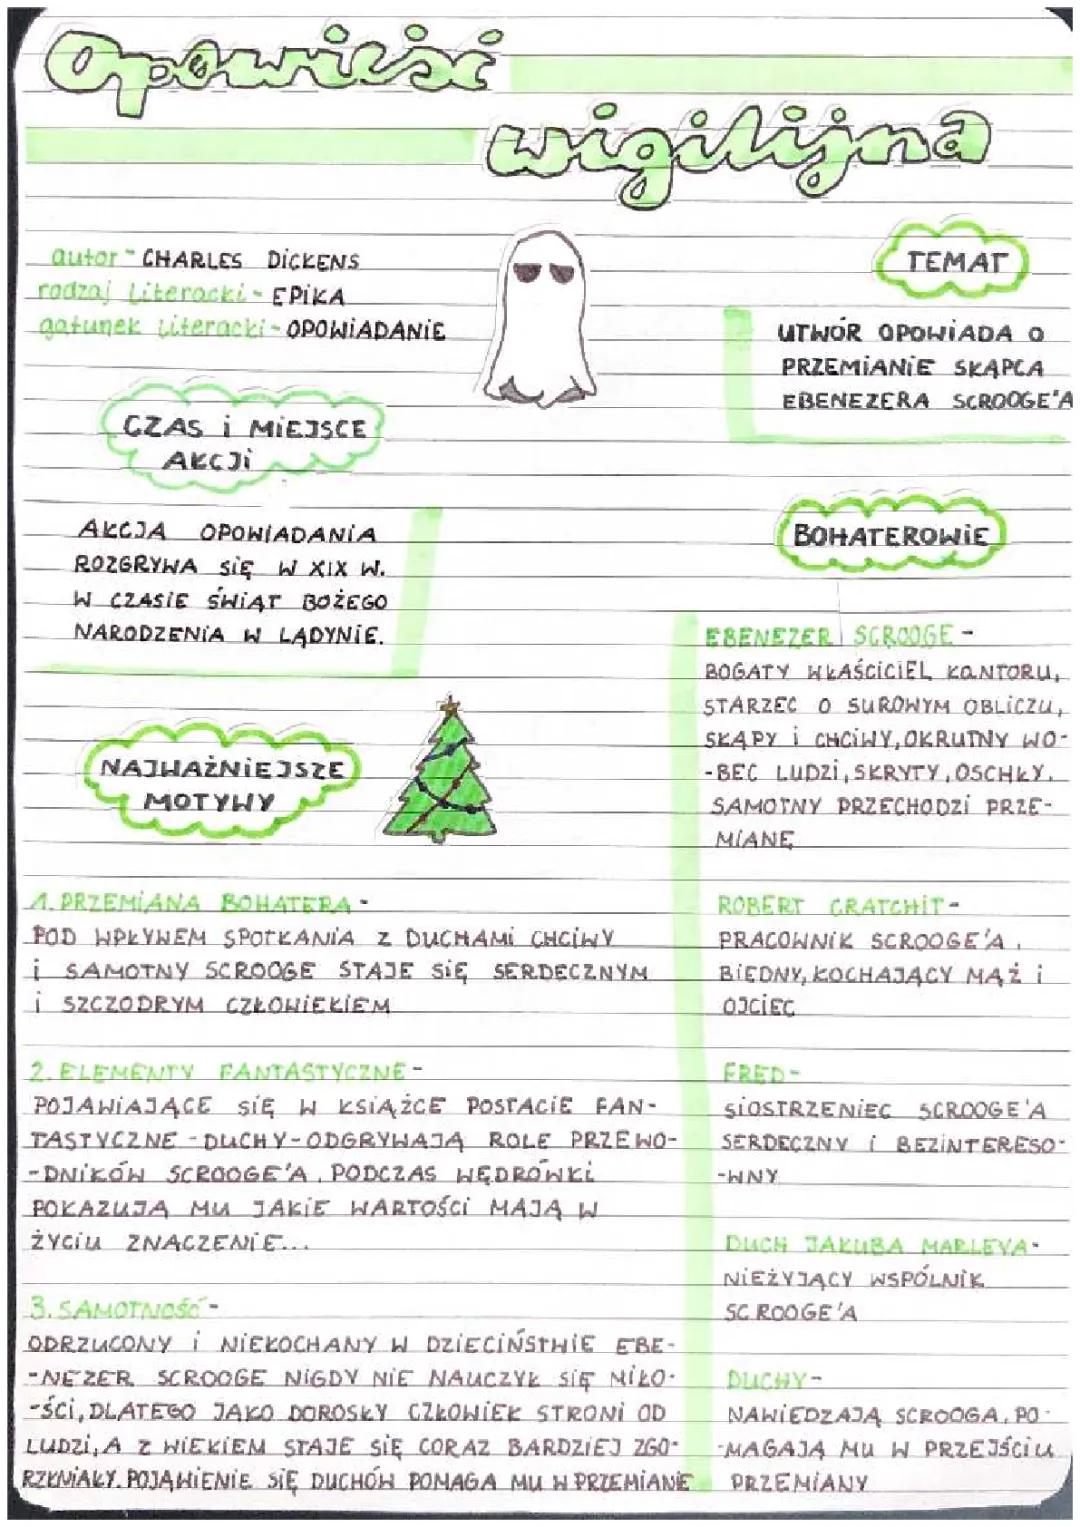 Opowieść
wigilijna
autor - CHARLES DICKENS
rodzaj literacki - EPIKA
gatunek literacki - OPOWIADANIE
TEMAT
UTWÓR OPOWIADA O
PRZEMIANIE SKĄPCA
EBENEZERA SCROOGE'A
CZAS i MIEJSCE
AKCJI
AKCJA OPOWIADANIA
ROZGRYWA SIĘ W XIX W.
W CZASIE ŚWIĄT BOŻEGO
NARODZENIA W LĄDYNIE.
BOHATEROWIE
EBENEZER SCROOGE -
BOGATY WŁAŚCICIEL KANTORU,
STARZEC O SUROWYM OBLICZU,
SKĄPY i CHCIWY, OKRUTNY WO-
-BEC LUDZI, SKRYTY, OSCHŁY,
SAMOTNY PRZECHODZI PRZE-
MIANĘ
ROBERT CRATCHIT -
PRACOWNIK SCROOGE'A,
BIEDNY, KOCHAJĄCY MĄŻ i
OJCIEC
FRED -
SIOSTRZENIEC SCROOGE'A
SERDECZNY i BEZINTERESO-
-WNY
DUCH JAKUBA MARLEYA -
NIEŻYJĄCY WSPÓLNIK
SCROOGE'A
DUCHY -
NAWIEDZAJĄ SCROOGA, PO-
-MAGAJĄ MU W PRZEJŚCIU
PRZEMIANY
NAJWAŻNIEJSZE
MOTYWY
1. PRZEMIANA BOHATERA -
POD WPŁYWEM SPOTKANIA Z DUCHAMI CHCIWY
i SAMOTNY SCROOGE STAJE SIĘ SERDECZNYM
i SZCZODRYM CZŁOWIEKIEM
2. ELEMENTY FANTASTYCZNE -
POJAWIAJĄCE SIĘ W KSIĄŻCE POSTACIE FAN-
TASTYCZNE - DUCHY - ODGRYWAJĄ ROLĘ PRZEWO-
-DNIKÓW SCROOGE'A. PODCZAS WĘDRÓWKI
POKAZUJĄ MU JAKIE WARTOŚCI MAJĄ W
ŻYCIU ZNACZENIE...
3. SAMOTNOŚĆ -
ODRZUCONY i NIEKOCHANY W DZIECIŃSTWIE EBE-
-NEZER SCROOGE NIGDY NIE NAUCZYŁ SIĘ MIŁO-
-ŚCI, DLATEGO JAKO DOROSŁY CZŁOWIEK STRONI OD
LUDZI, A Z WIEKIEM STAJE SIĘ CORAZ BARDZIEJ ZGO-
RZKNIAŁY. POJAWIENIE SIĘ DUCHÓW POMAGA MU W PRZEMIANIE